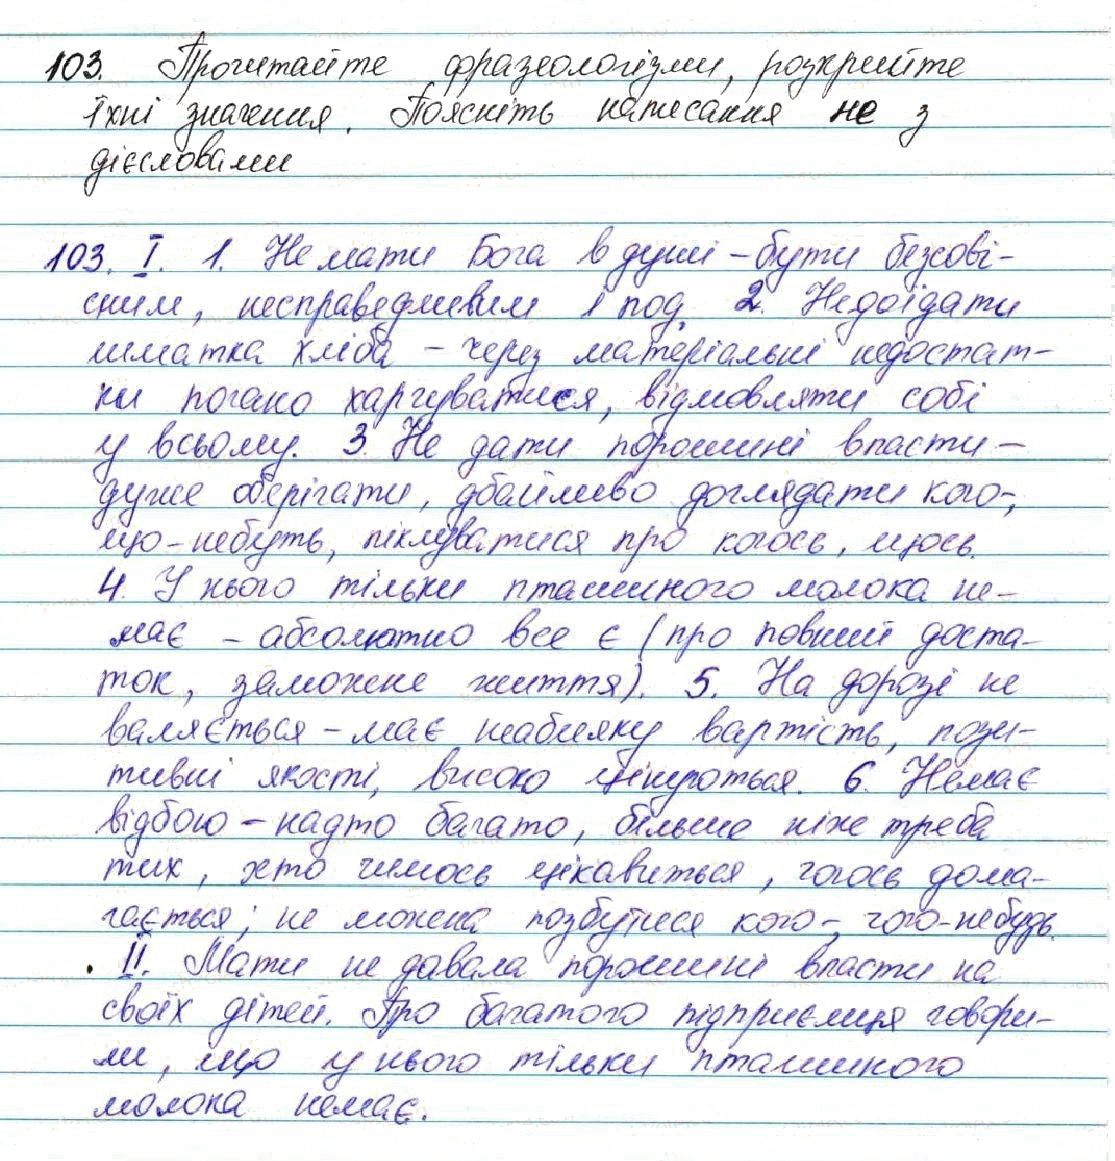 103. Прочитайте фразеологізми, розкрийте
їхні значення. Поясніть написання не з
дієсловами
103. I. 1. Не мати Бога в душі – бути безсові-
сним, несправедливим і под. 2. Недоїдати
шматка хліба – через матеріальні недостат-
ки погано харчуватися, відмовляти собі
у всьому. 3. Не дати порошині впасти –
дуже оберігати, дбайливо доглядати кого-,
що-небуть, піклуватися про когось, щось.
4. У нього тільки пташиного молока не-
має – абсолютно все є (про повний доста-
ток, заможне життя). 5. На дорозі не
валяється – має неабияку вартість, пози-
тивні якості, високо цінується. 6. Немає
відбою – надто багато, більше ніж треба
тих, хто чимось цікавиться, чогось дома-
гається; не можна позбутися кого-, чого-небудь.
II. Мати не давала порошині впасти на
своїх дітей. Про багатого підприємця говори-
ли, що у нього тільки пташиного
молока немає.